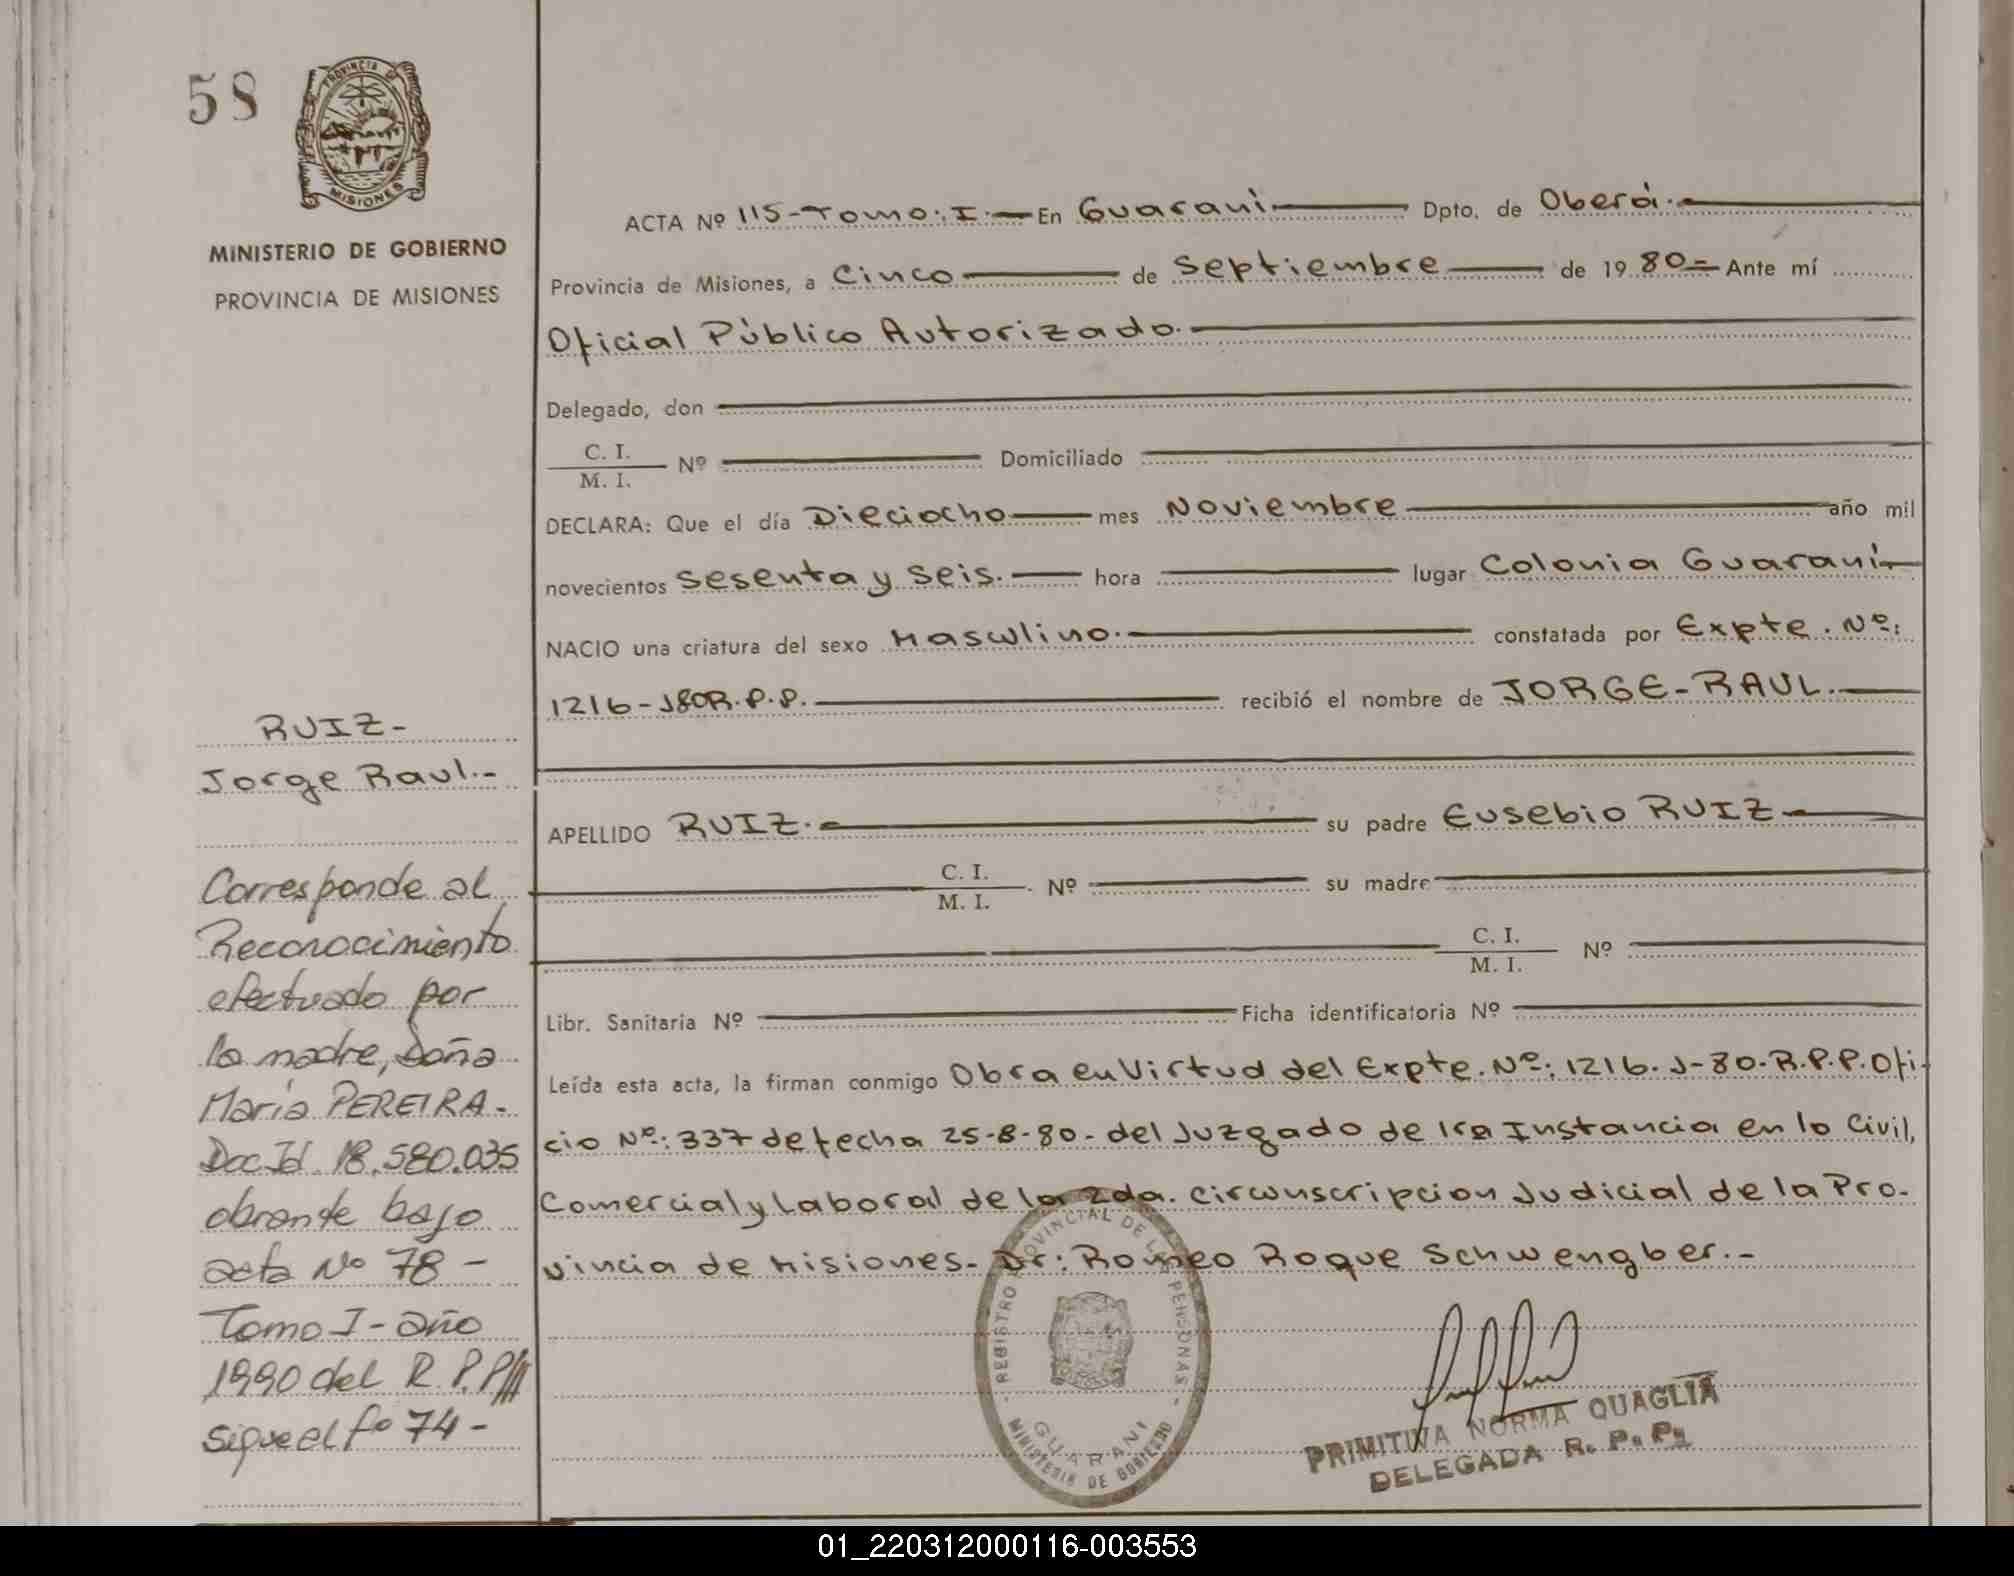 58
PROVINCIA DE
MISIONES
MINISTERIO DE GOBIERNO
PROVINCIA DE MISIONES
RUIZ-
Jorge Raul.-
Corresponde al
Reconocimiento
efectuado por
la madre, Doña
María PEREIRA-
Doc Id 18.580.035
obrante bajo
acta Nº 78-
Tomo I- año
1990 del R.P.P///
sigue el fº 74-
ACTA Nº 115-Tomo:I.- En Guaraní Dpto. de Oberá.-
Provincia de Misiones, a Cinco de Septiembre de 1980= Ante mí
Oficial Público Autorizado.-
Delegado, don
C. I.
M. I. Nº Domiciliado
DECLARA: Que el día Dieciocho mes Noviembre año mil
novecientos sesenta y seis.- hora lugar Colonia Guaraní-
NACIO una criatura del sexo Masculino.- constatada por Expte. Nº:
1216-J80R.P.P. recibió el nombre de JORGE-RAUL.-
APELLIDO RUIZ.- su padre Eusebio RUIZ-
C. I.
M. I. Nº su madre
C. I.
M. I. Nº
Libr. Sanitaria Nº Ficha identificatoria Nº
Leída esta acta, la firman conmigo Obra en Virtud del Expte. Nº: 1216.J-80.R.P.P.Ofi-
cio Nº: 337 de fecha 25-8-80- del Juzgado de 1ra Instancia en lo Civil,
Comercial y Laboral de la 2da. circunscripcion Judicial de la Pro-
vincia de Misiones- Dr: Romeo Roque Schwengber.-
REGISTRO PROVINCIAL DE LAS PERSONAS
GUARANI
MINISTERIO DE GOBIERNO
PRIMITIVA NORMA QUAGLIA
DELEGADA R. P. P.
01_220312000116-003553